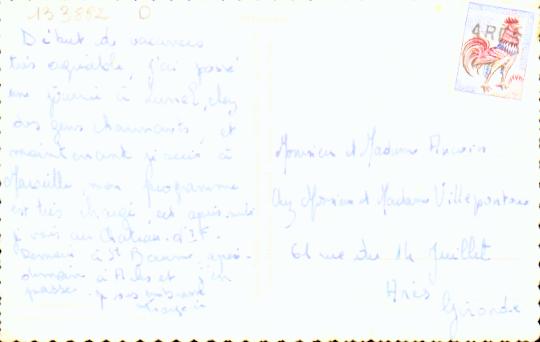 133882 D
Début de vacances
très agréable, j'ai passé
une journée à Lunel, chez
des gens charmants, et
maintenant je suis à
Marseille, mon programme
est très chargé, cet après-midi
je vais au Château d'If.
Demain à St Baume, après-
demain à Arles et j'en
passe. je vous embrasse
ARES
Monsieur et Madame
chez Monsieur et Madame Villepontoux
61 rue du 14 Juillet
Arès
Gironde